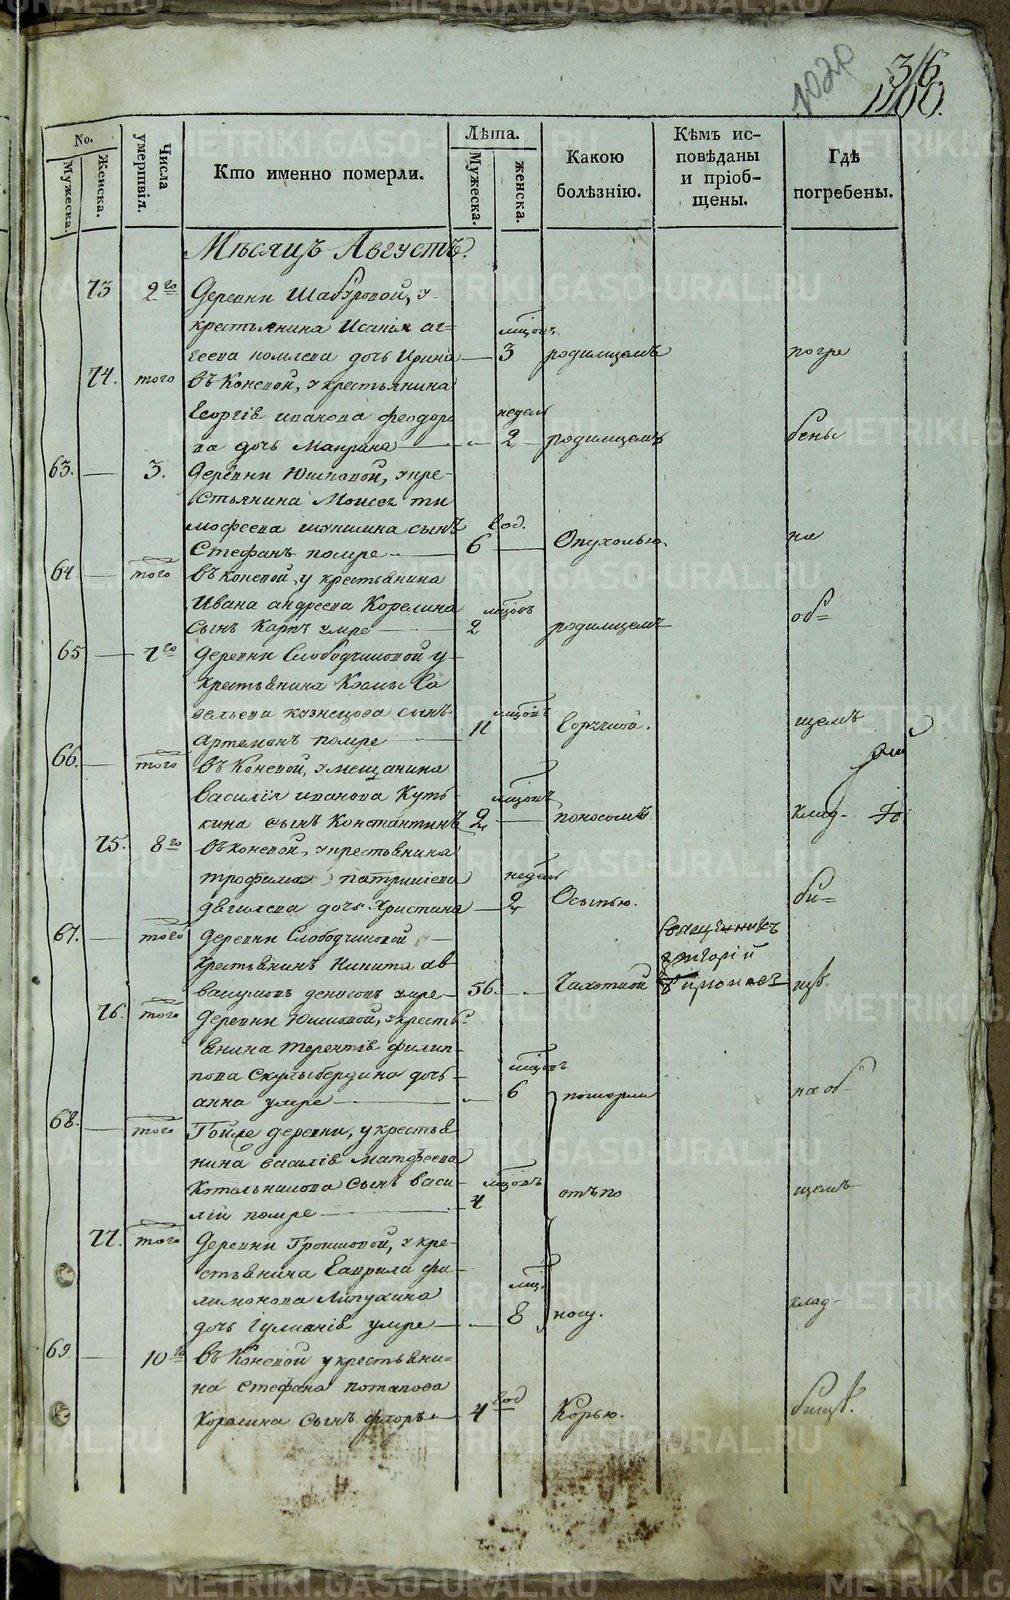 316
No.
Мужеска.
Женска.
Числа умертвія.
Кто именно померли.
Лѣта.
Мужеска.
женска.
Какою болѣзнію.
Кѣмъ исповѣданы и пріобщены.
Гдѣ погребены.
Мѣсяцъ Августъ
73 2го Деревни Шабуровой, у
крестьянина Исаіи
дочь Ирина мцовъ 3 родимцемъ погре
74. того въ Коневой, у крестьянина
Георгія иванова феодоро
ва дочь недель 2 родимцемъ бены
63. 3. Деревни Юшковой, у кре-
стьянина Моисея ти
мофеева сынъ
Стефанъ помре год. 6 Опухолью. на
64 того въ коневой, у крестьянина
Ивана андреева Корелина
Сынъ Карпъ умре мцовъ 2 родимцемъ об=
65 7го деревни Слободчиковой у
крестьянина Козмы Са
вельева кузнецова сынъ
Артемонъ помре мцовъ 11 Горячкой. щемъ
66. того въ Коневой, у мещанина
василія иванова Куть
кина сынъ Константинъ мцовъ 2 поносомъ клад-
75. 8го въ коневой, у крестьянина
трофима
дочь Христина недель 2 Осыпью. би=
67. того деревни Слободчиковой
крестьянинъ Никита ав
денисовъ умре 56. Чахоткой
священникъ
григорій
76. того деревни Юшковой, у кресть
янина терентія филип
пова дочь
анна умре мцовъ 6 померли на об-
68. того Тойже деревни, у крестья
нина василія матфеева
Котельникова Сынъ васи
лій помре мцовъ 4 отъ по щемъ
77. того деревни у кре-
стьянина Гаврила фи
лимонова Лопухина
дочь іулианія умре мц. 8 носу. клад-
69. 10го въ Коневой у крестьяни=
на Стефана потапова
Корелина Сынъ флоръ год 4 Корью. бищѣ.